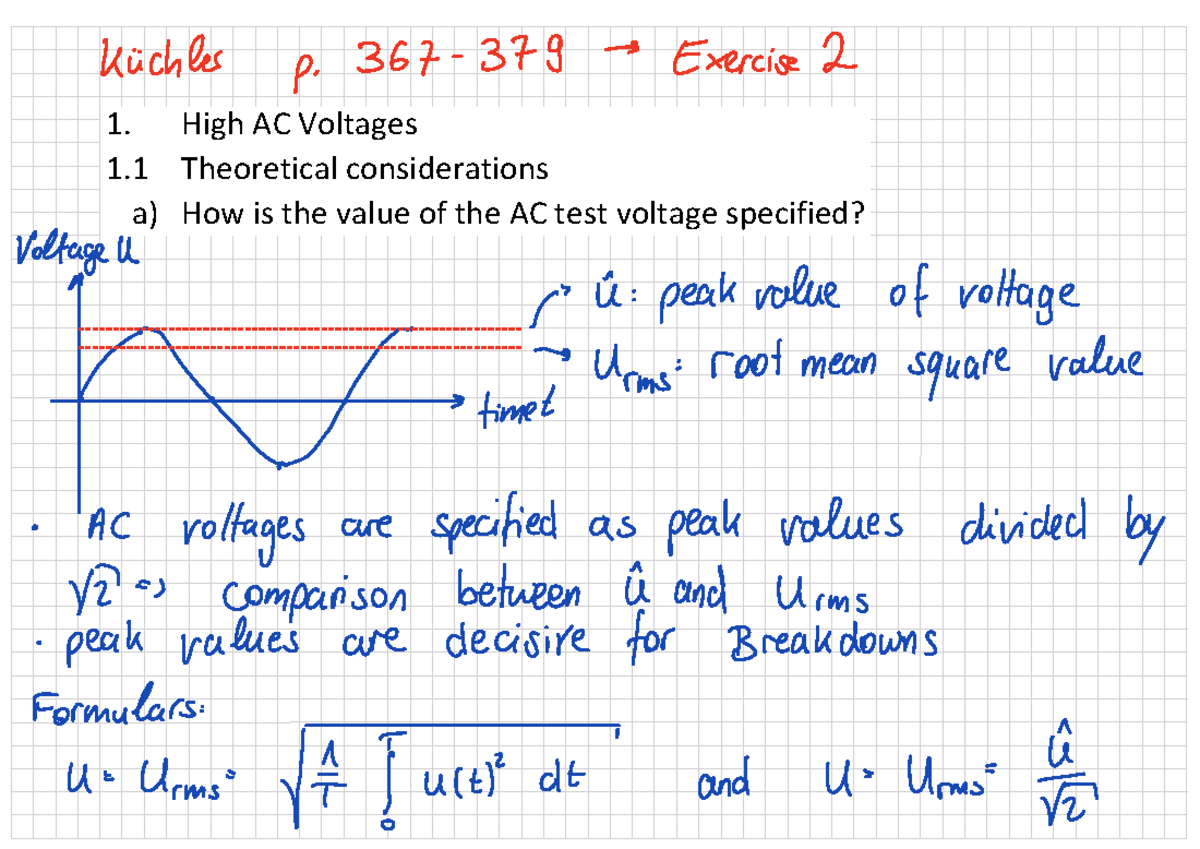 Küchler p. 367-379 → Exercise 2
1. High AC Voltages
1.1 Theoretical considerations
a) How is the value of the AC test voltage specified?
Voltage U
û: peak value of voltage
Urms: root mean square value
time t
· AC voltages are specified as peak values divided by
√2 => comparison between û and Urms
· peak values are decisive for Breakdowns
Formulars:
U = Urms = √(1/T ∫₀ᵀ u(t)² dt) and U = Urms = û/√2